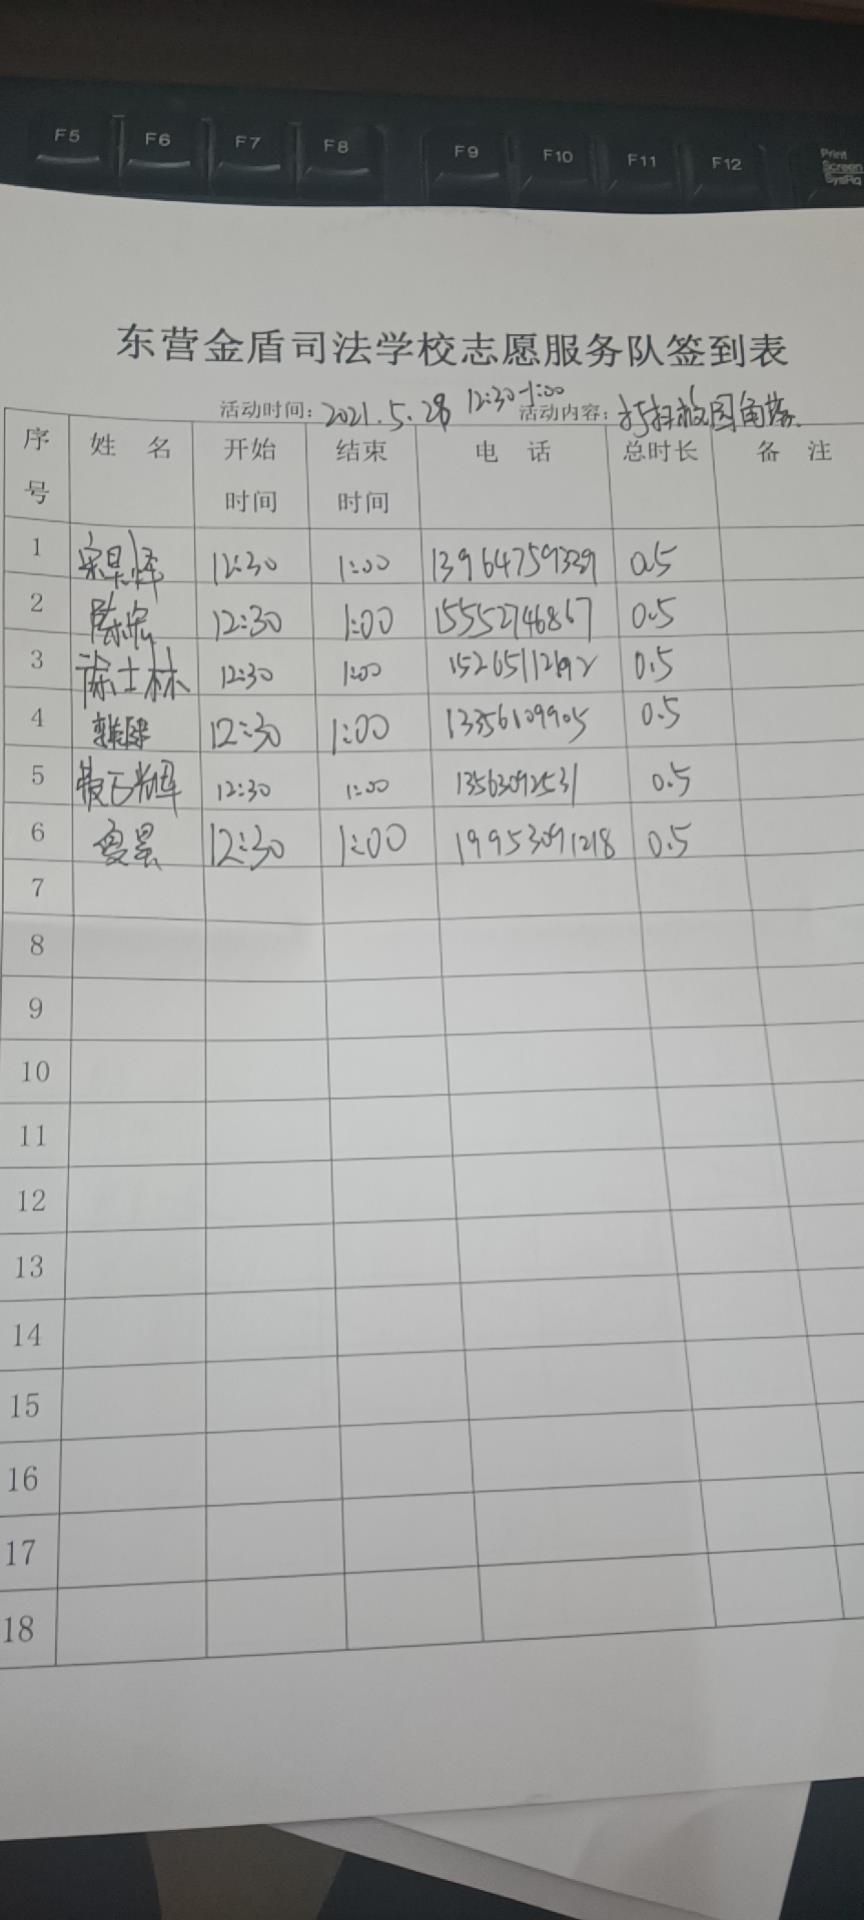 F5 F6 F7 F8 F9 F10 F11 F12 Print Screen SysRq
东营金盾司法学校志愿服务队签到表
活动时间：2021.5.28 12:30-1:00 活动内容：打扫校园角落.
序号 姓 名 开始时间 结束时间 电 话 总时长 备 注
1 12:30 1:00 13964759339 0.5
2 陈宏 12:30 1:00 15552746867 0.5
3 徐士林 12:30 1:00 0.5
4 12:30 1:00 13356109905 0.5
5 12:30 1:00 13563092531 0.5
6 夏昊 12:30 1:00 19953091218 0.5
7
8
9
10
11
12
13
14
15
16
17
18